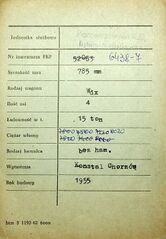 Jednostka służbowa
Nr inwentarza PKP 52063 6438-7
Szerokość toru 785 mm
Rodzaj wagonu Wdx
Ilość osi 4
Ładowność w t. 15 ton
Ciężar własny
Rodzaj hamulca bez ham.
Wytwórnia Konstal Chorzów
Rok budowy 1955